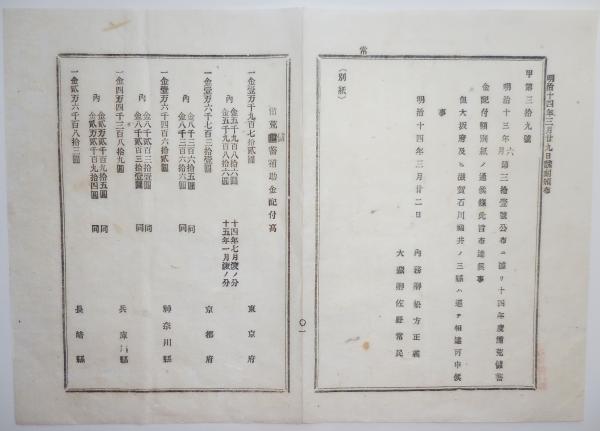 明治十四年三月廿九日
常
甲第三拾九號
明治十三年六月第三拾壹號公布ニ據リ十四年度備荒儲蓄
金配付額別紙ノ通候條此旨布達候事
但大坂府及ヒ滋賀石川福井ノ三縣ハ追テ相達可申候
事
明治十四年三月廿二日
內務卿松方正義
大藏卿佐野常民
(別紙)
〇一
備荒儲蓄補助金配付高
一金壹万千九百七拾貳圓 東京府
內
金五千九百八拾六圓 十四年七月渡ノ分
金五千九百八拾六圓 十五年一月渡ノ分
一金壹万六千七百三拾壹圓 京都府
內
同
同
一金壹万六千四百六拾三圓 神奈川縣
內
金八千貳百三拾壹圓 同
金八千貳百三拾貳圓 同
一金四万四千三百八拾九圓 兵庫縣
內
金貳万貳千百九拾五圓 同
金貳万貳千百九拾四圓 同
一金貳万六千百八拾三圓 長崎縣